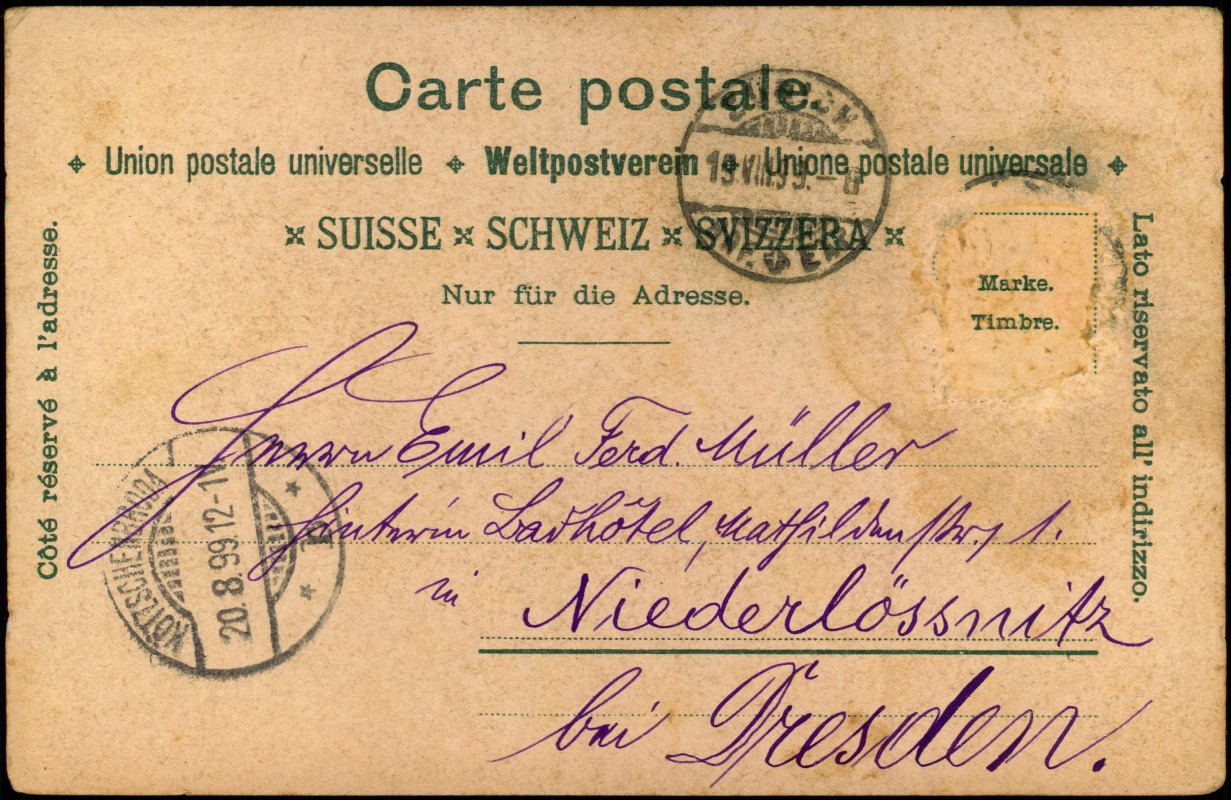 Carte postale.
Union postale universelle Weltpostverein Unione postale universale
SUISSE SCHWEIZ SVIZZERA
Nur für die Adresse.
Côté réservé à l'adresse.
Lato riservato all' indirizzo.
19.VIII.99.
Marke.
Timbre.
Herrn Emil Ferd. Müller
hinterm Badhôtel, Mathildenstr. 1.
in Niederlössnitz
bei Dresden.
KÖTZSCHENBRODA
20.8.99.12-1N.